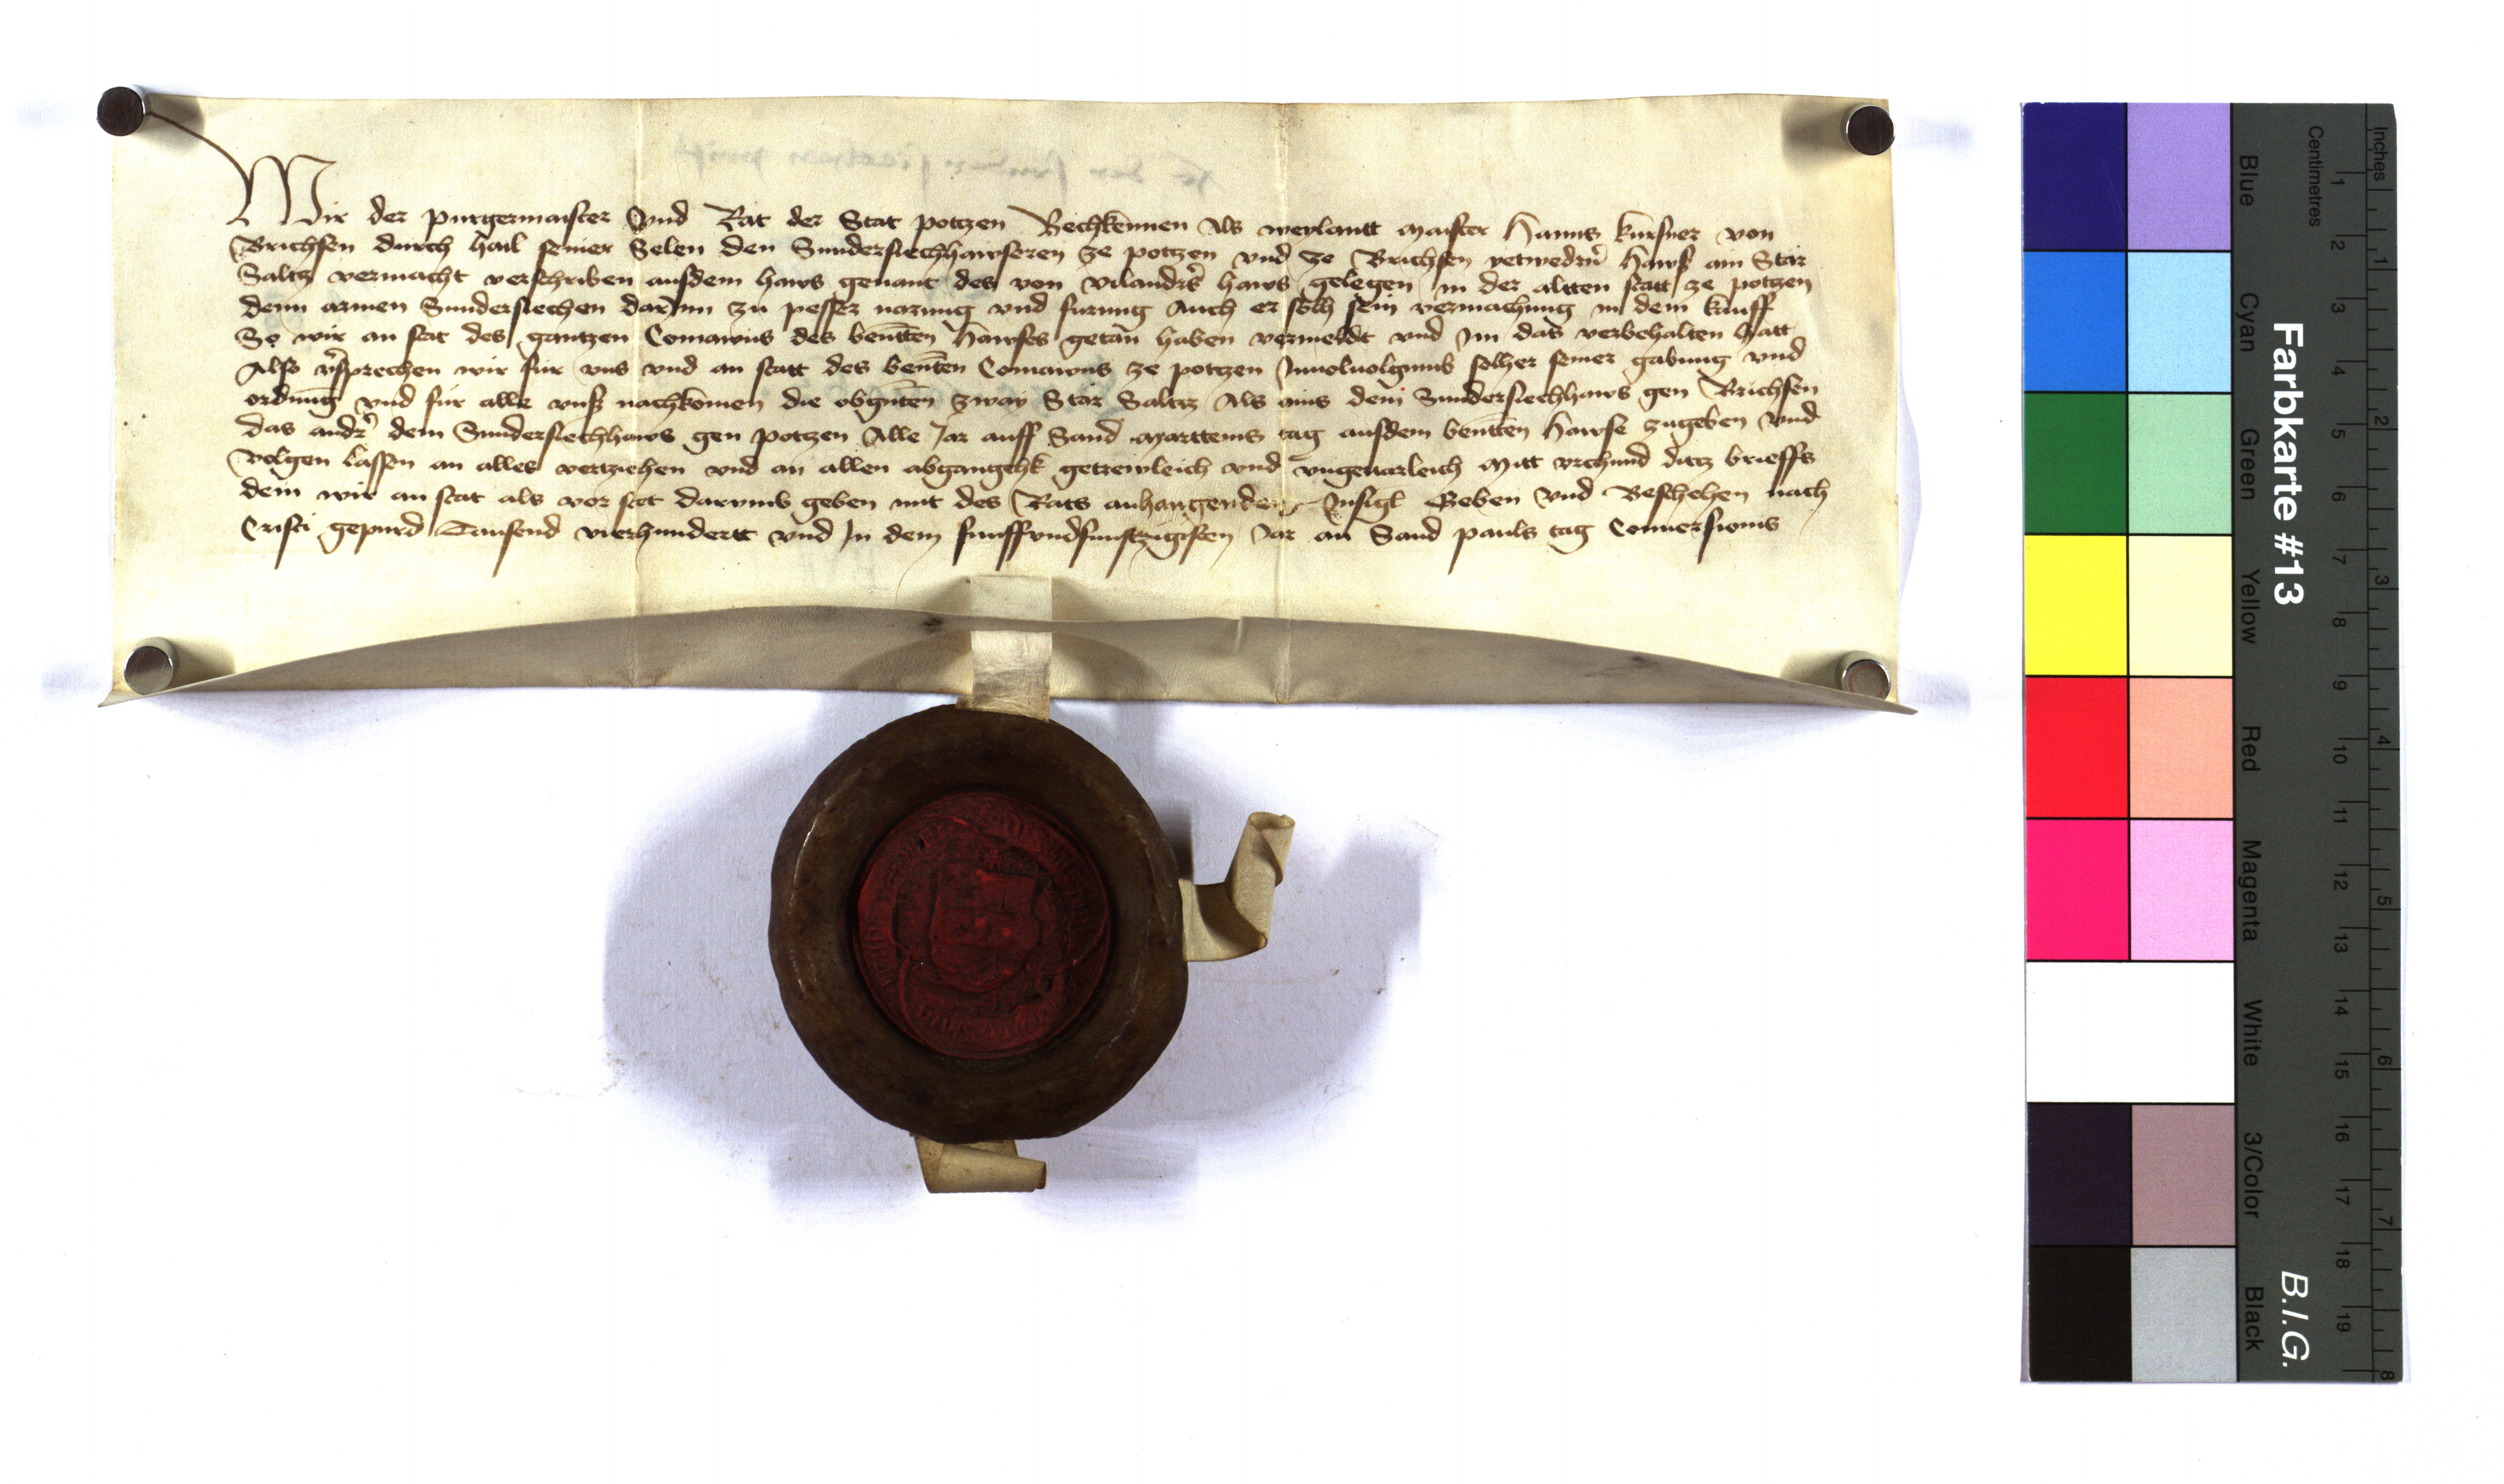 Wir der purgermaister Vnd Rat der Stat potzen Bechkennen Als weylantt maister Hanns kursner von
Brichsen durch hail seiner Selen den Sundersiechhawseren ze potzen vnd ze Brichsen yetwedrm̄ Hawß ain Stär
Saltz vermacht verschriben ausdem haws genant des von vilandrs haws gelegen in der altten statt ze potzen
denn armen Sundersiechen darInn zu pesser narung vnd furung Auch er solh sein vermachung in dem kauff
So wir an stat des gantzen Comawns des benn̄tten Hawses getan haben vermeldt vnd Im das verbehalten hatt
Also v̄sprechen wir für vns vnd an statt des benn̄ten Comawns ze potzen solher seiner gabung vnd
ordnūng vnd für alle vnß nachkōmen die obgn̄ten zway Stär Saltz Als ains dem Sundersiechhaws gen Brichsen
das andr̄ dem Sundersiechhaws gen potzen Alle Jar auff Sand Marttems tag ausdem benn̄tten Hawse zugeben Vnd
volgen lassen an alles vertziehen vnd an allen abgangckh getrewleich vnd vngeuarleich Mitt vrchund ditz brieffs
dem wir an stat als vor stet darvmb geben mit des Rats anhangendem Insigl Geben Vnd Beschehen nach
Cristi gepurd Tausend vierhundertt vnd In dem funffvndfunftzigisten Jar an Sand pauls tag Conuersionis
Farbkarte #13
B.I.G.
Blue
Cyan
Green
Yellow
Red
Magenta
White
3/Color
Black
Centimetres
1 2 3 4 5 6 7 8 9 10 11 12 13 14 15 16 17 18 19
Inches
1 2 3 4 5 6 7 8